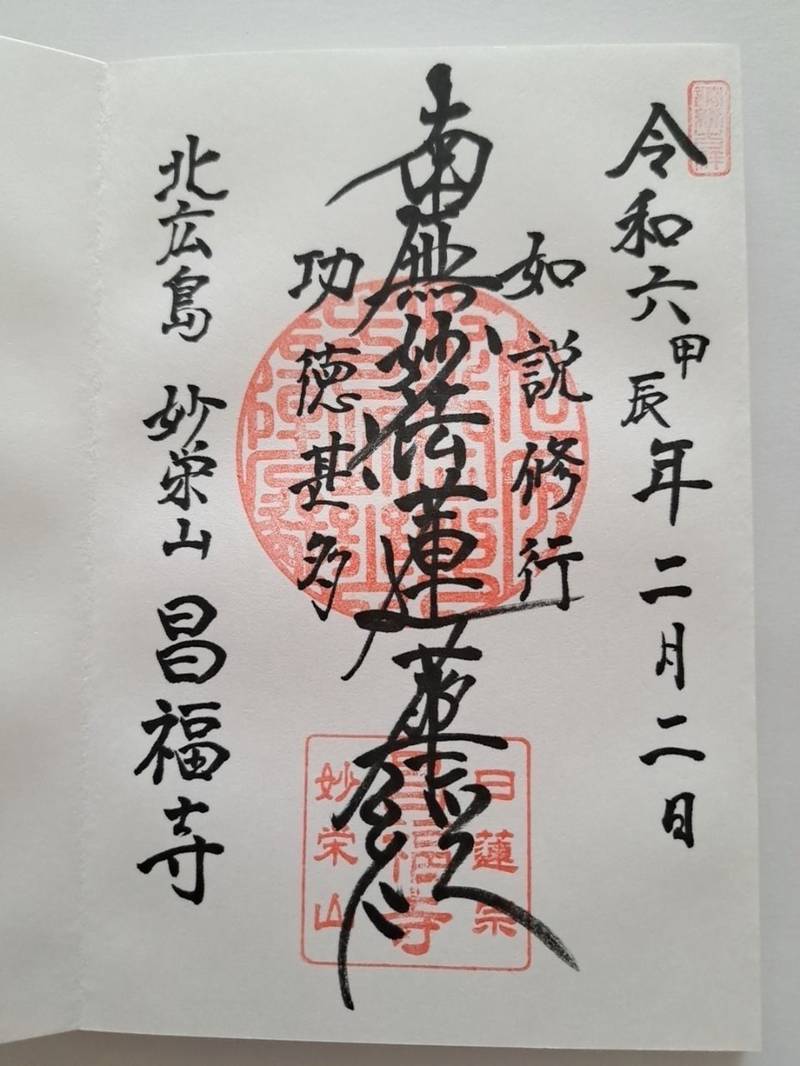 令和六甲辰年二月二日
如説修行
南無妙法蓮華経
功徳甚多
北広島 妙栄山 昌福寺
日蓮宗
昌福寺
妙栄山